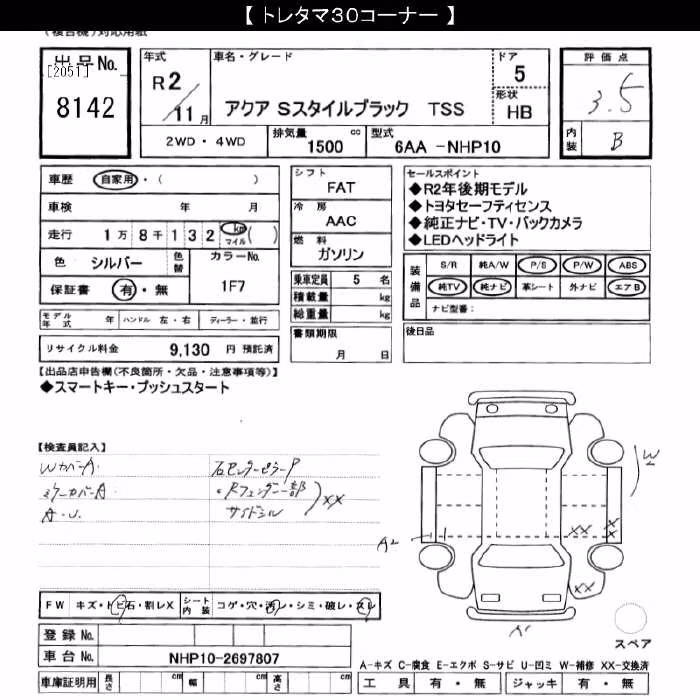 【 トレタマ30コーナー 】
(複合機)対応用紙
出品No.
[2051]
8142
年式
R2/11月
車名・グレード
アクア Sスタイルブラック TSS
ドア
5
形状
HB
2WD・4WD
排気量 1500 cc
型式 6AA -NHP10
評価点
3.5
内装 B
車歴 自家用・( )
車検 年 月
走行 1万8千132 km マイル ( )
色 シルバー 色替 カラーNo.
保証書 有・無 1F7
モデル年式 年 ハンドル 左・右 ディーラー・並行
リサイクル料金 9,130 円 預託済
シフト
FAT
冷房
AAC
燃料
ガソリン
乗車定員 5 名
積載量 kg
総重量 kg
書類期限
月 日
セールスポイント
◆R2年後期モデル
◆トヨタセーフティセンス
◆純正ナビ・TV・バックカメラ
◆LEDヘッドライト
装備品
S/R 純A/W P/S P/W ABS
純TV 純ナビ 革シート 外ナビ エアB
ナビ型番:
後日品
【出品店申告欄(不良箇所・欠品・注意事項等)】
◆スマートキー・プッシュスタート
【検査員記入】
WカバーA
ミラーカバーA
A・U.
右センターピラーP
〃Rフェンダー一部
サイドシル
XX
W
A2
XX
XX
XX
A1
スペア
FW キズ・トビ石・割レX シート内装 コゲ・穴・汚レ・シミ・破レ・スレ
登録No.
車台No. NHP10-2697807
車庫証明用 長さ cm 幅 cm 高さ cm
A-キズ C-腐食 E-エクボ S-サビ U-凹ミ W-補修 XX-交換済
工具 有・無 ジャッキ 有・無